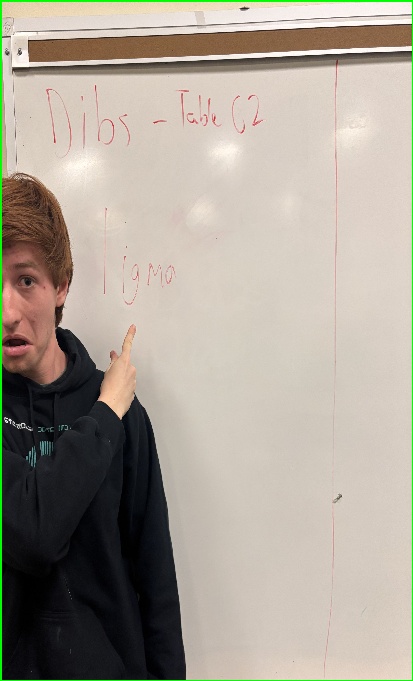 Dibs - Table C2
ligma